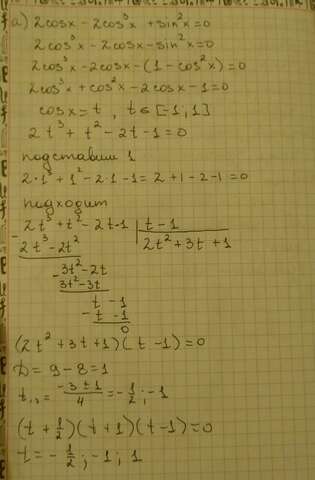 а) 2cosx - 2cos³x + sin²x = 0
2cos³x - 2cosx - sin²x = 0
2cos³x - 2cosx - (1 - cos²x) = 0
2cos³x + cos²x - 2cosx - 1 = 0
cosx = t , t ∈ [-1 ; 1]
2t³ + t² - 2t - 1 = 0
подставим 1
2·1³ + 1² - 2·1 - 1 = 2 + 1 - 2 - 1 = 0
подходит
2t³ + t² - 2t - 1 | t - 1
2t³ - 2t² | 2t² + 3t + 1
- 3t² - 2t
3t² - 3t
t - 1
- t - 1
0
(2t² + 3t + 1)(t - 1) = 0
D = 9 - 8 = 1
t₁,₂ = (-3 ± 1)/4 = -1/2 ; -1
(t + 1/2)(t + 1)(t - 1) = 0
t = -1/2 ; -1 ; 1